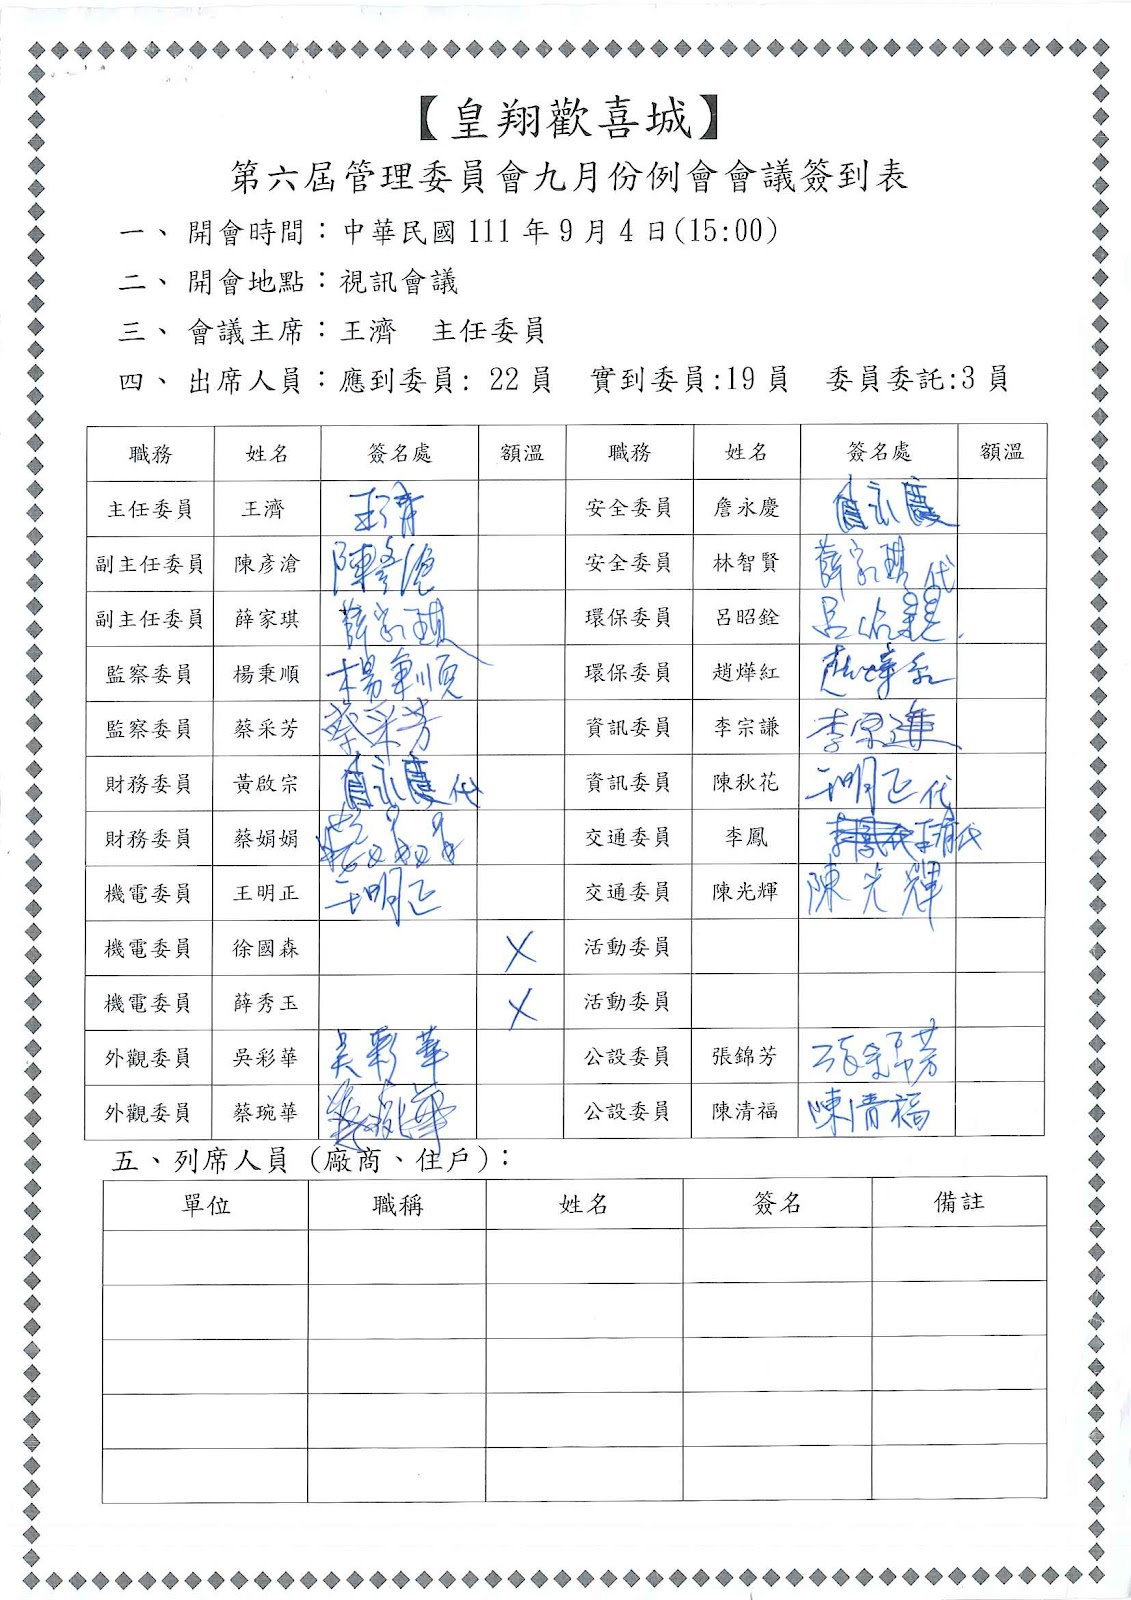 【皇翔歡喜城】
第六屆管理委員會九月份例會會議簽到表
一、開會時間：中華民國111年9月4日(15:00)
二、開會地點：視訊會議
三、會議主席：王濟 主任委員
四、出席人員：應到委員: 22員 實到委員:19員 委員委託:3員
職務 姓名 簽名處 額溫 職務 姓名 簽名處 額溫
主任委員 王濟 王濟 安全委員 詹永慶 詹永慶
副主任委員 陳彥滄 陳彥滄 安全委員 林智賢 薛家琪代
副主任委員 薛家琪 薛家琪 環保委員 呂昭銓
監察委員 楊秉順 楊秉順 環保委員 趙燁紅 趙燁紅
監察委員 蔡采芳 蔡采芳 資訊委員 李宗謙 李宗謙
財務委員 黃啟宗 詹永慶代 資訊委員 陳秋花 王明正代
財務委員 蔡娟娟 蔡娟娟 交通委員 李鳳
機電委員 王明正 王明正 交通委員 陳光輝 陳光輝
機電委員 徐國森 X 活動委員
機電委員 薛秀玉 X 活動委員
外觀委員 吳彩華 吳彩華 公設委員 張錦芳 張錦芳
外觀委員 蔡琬華 蔡琬華 公設委員 陳清福 陳清福
五、列席人員(廠商、住戶)：
單位 職稱 姓名 簽名 備註